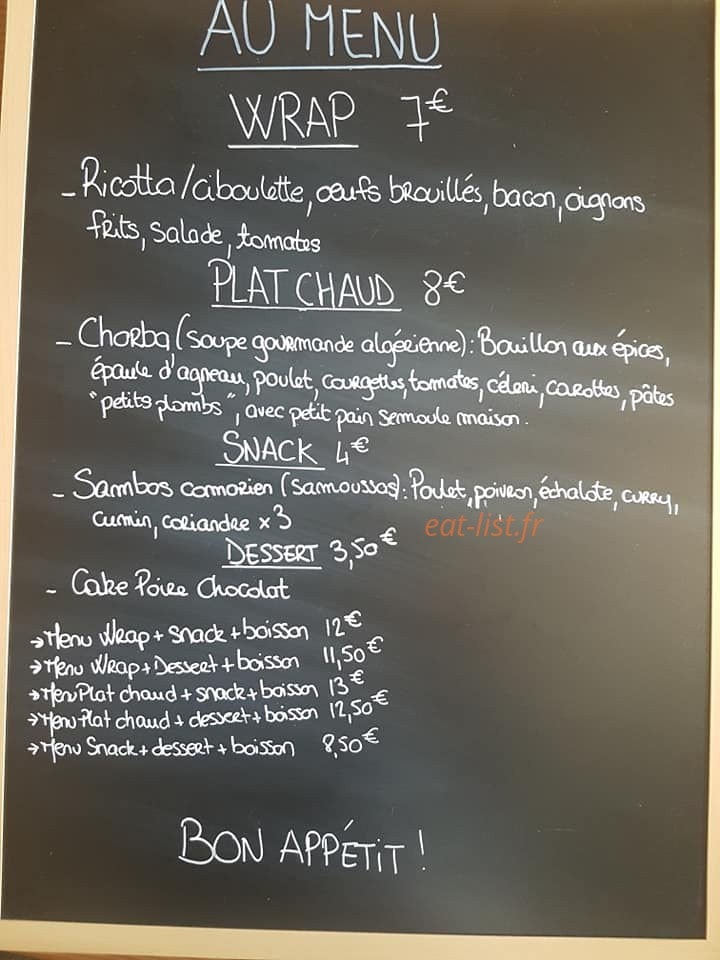 AU MENU
WRAP 7€
- Ricotta/ciboulette, œufs brouillés, bacon, oignons
frits, salade, tomates
PLAT CHAUD 8€
- Chorba (soupe gourmande algérienne): Bouillon aux épices,
épaule d'agneau, poulet, courgettes, tomates, céleri, carottes, pâtes
"petits plombs", avec petit pain semoule maison.
SNACK 4€
- Sambos comorien (samoussas): Poulet, poivron, échalote, curry,
cumin, coriandre x3
eat-list.fr
DESSERT 3,50€
- Cake Poire Chocolat
→ Menu Wrap + snack + boisson 12€
→ Menu Wrap + Dessert + boisson 11,50€
→ Menu Plat chaud + snack + boisson 13€
→ Menu Plat chaud + dessert + boisson 12,50€
→ Menu Snack + dessert + boisson 8,50€
BON APPÉTIT !